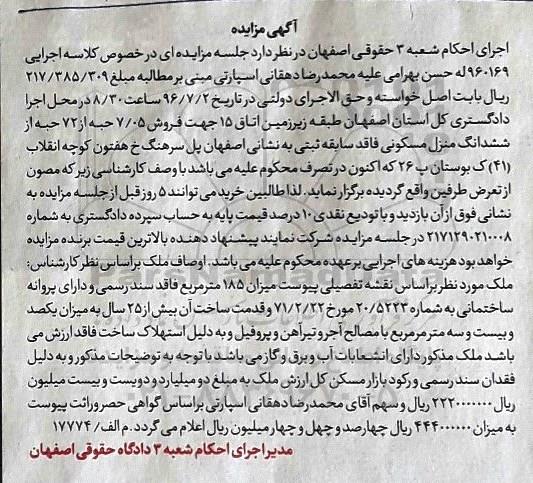 آگهی مزایده
اجرای احکام شعبه ۳ حقوقی اصفهان در نظر دارد جلسه مزایده ای در خصوص کلاسه اجرایی
۹۶۰۱۶۹ له حسن بهرامی علیه محمدرضا دهقانی اسپارتی مبنی بر مطالبه مبلغ ۲۱۷/۳۸۵/۳۰۹
ریال بابت اصل خواسته و حق الاجرای دولتی در تاریخ ۹۶/۷/۲ ساعت ۸/۳۰ در محل اجرا
دادگستری کل استان اصفهان طبقه زیرزمین اتاق ۱۵ جهت فروش ۷/۰۵ حبه از ۷۲ حبه از
ششدانگ منزل مسکونی فاقد سابقه ثبتی به نشانی اصفهان پل سرهنگ خ هفتون کوچه انقلاب
(۴۱) ک بوستان پ ۲۶ که اکنون در تصرف محکوم علیه می باشد با وصف کارشناسی زیر که مصون
از تعرض طرفین واقع گردیده برگزار نماید. لذا طالبین خرید می توانند ۵ روز قبل از جلسه مزایده به
نشانی فوق از آن بازدید و با تودیع نقدی ۱۰ درصد قیمت پایه به حساب سپرده دادگستری به شماره
۲۱۷۱۲۹۰۲۱۰۰۸ در جلسه مزایده شرکت نمایند پیشنهاد دهنده بالاترین قیمت برنده مزایده
خواهد بود هزینه های اجرایی بر عهده محکوم علیه می باشد. اوصاف ملک براساس نظر کارشناس:
ملک مورد نظر براساس نقشه تفصیلی پیوست میزان ۱۸۵ مترمربع فاقد سند رسمی و دارای پروانه
ساختمانی به شماره ۲۰/۵۲۲۳ مورخ ۷۱/۲/۲۲ و قدمت ساخت آن بیش از ۲۵ سال به میزان یکصد
و بیست و سه متر مرمربع با مصالح آجر و تیرآهن و پروفیل و به دلیل استهلاک ساخت فاقد ارزش می
باشد ملک مذکور دارای انشعابات آب و برق و گاز می باشد با توجه به توضیحات مذکور و به دلیل
فقدان سند رسمی و رکود بازار مسکن کل ارزش ملک به مبلغ دو میلیارد و دویست و بیست میلیون
ریال ۲۲۲۰۰۰۰۰۰۰ ریال و سهم آقای محمدرضا دهقانی اسپارتی براساس گواهی حصر وراثت پیوست
به میزان ۴۴۴۰۰۰۰۰۰ ریال چهارصد و چهل و چهار میلیون ریال اعلام می گردد. م الف/ ۱۷۷۷۴
مدیر اجرای احکام شعبه ۳ دادگاه حقوقی اصفهان